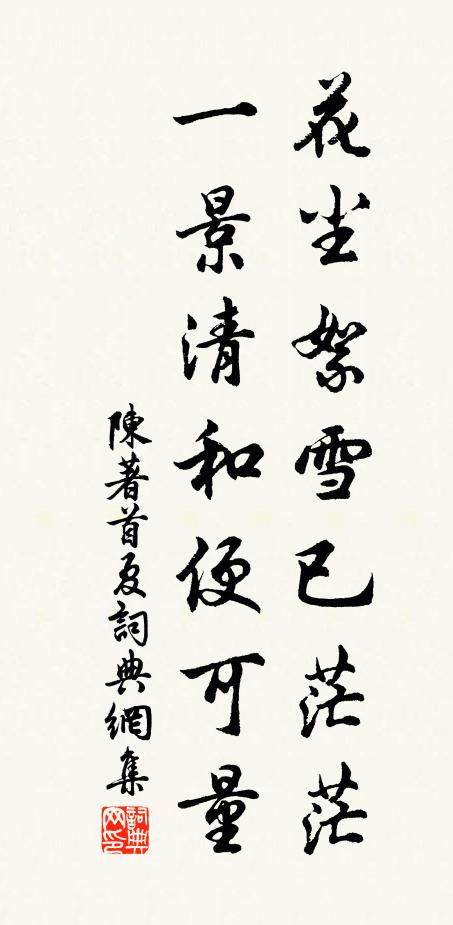 花尘絮雪已茫茫
一景清和便可量
陳著首夏詞典網集
詞典网印